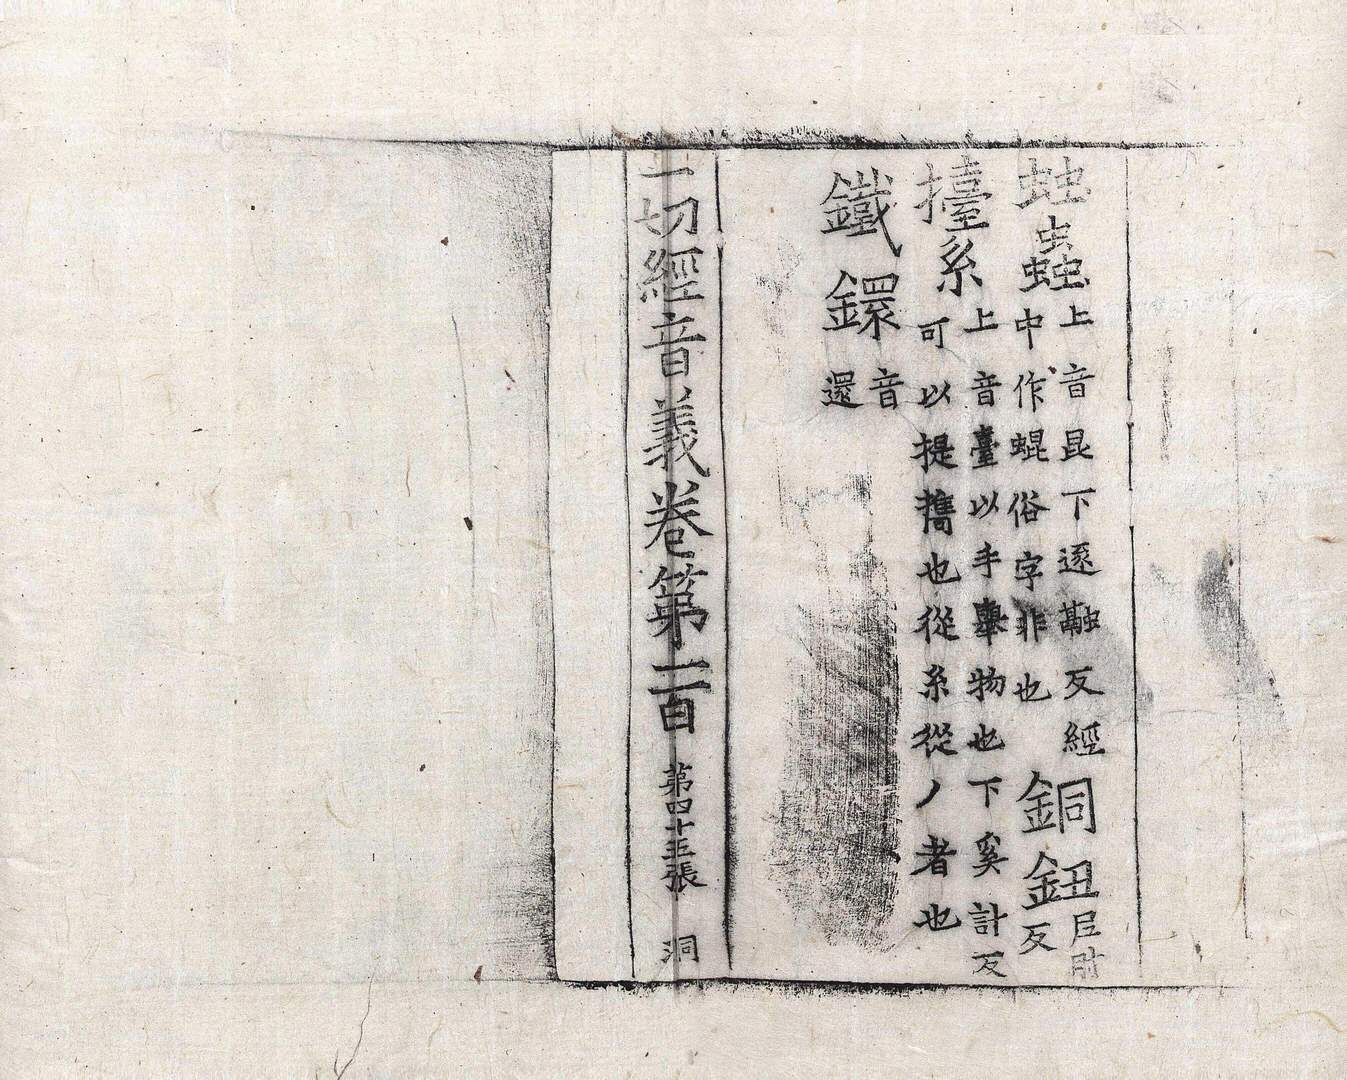 䖵蟲上音昆下逐融反經
中作蜫俗字非也
銅鈕尼肘
反
擡系上音臺以手舉物也下奚計反
可以提攜也從糸從丿者也
鐵鐶音
還
一切經音義卷第一百 第四十五張 洞